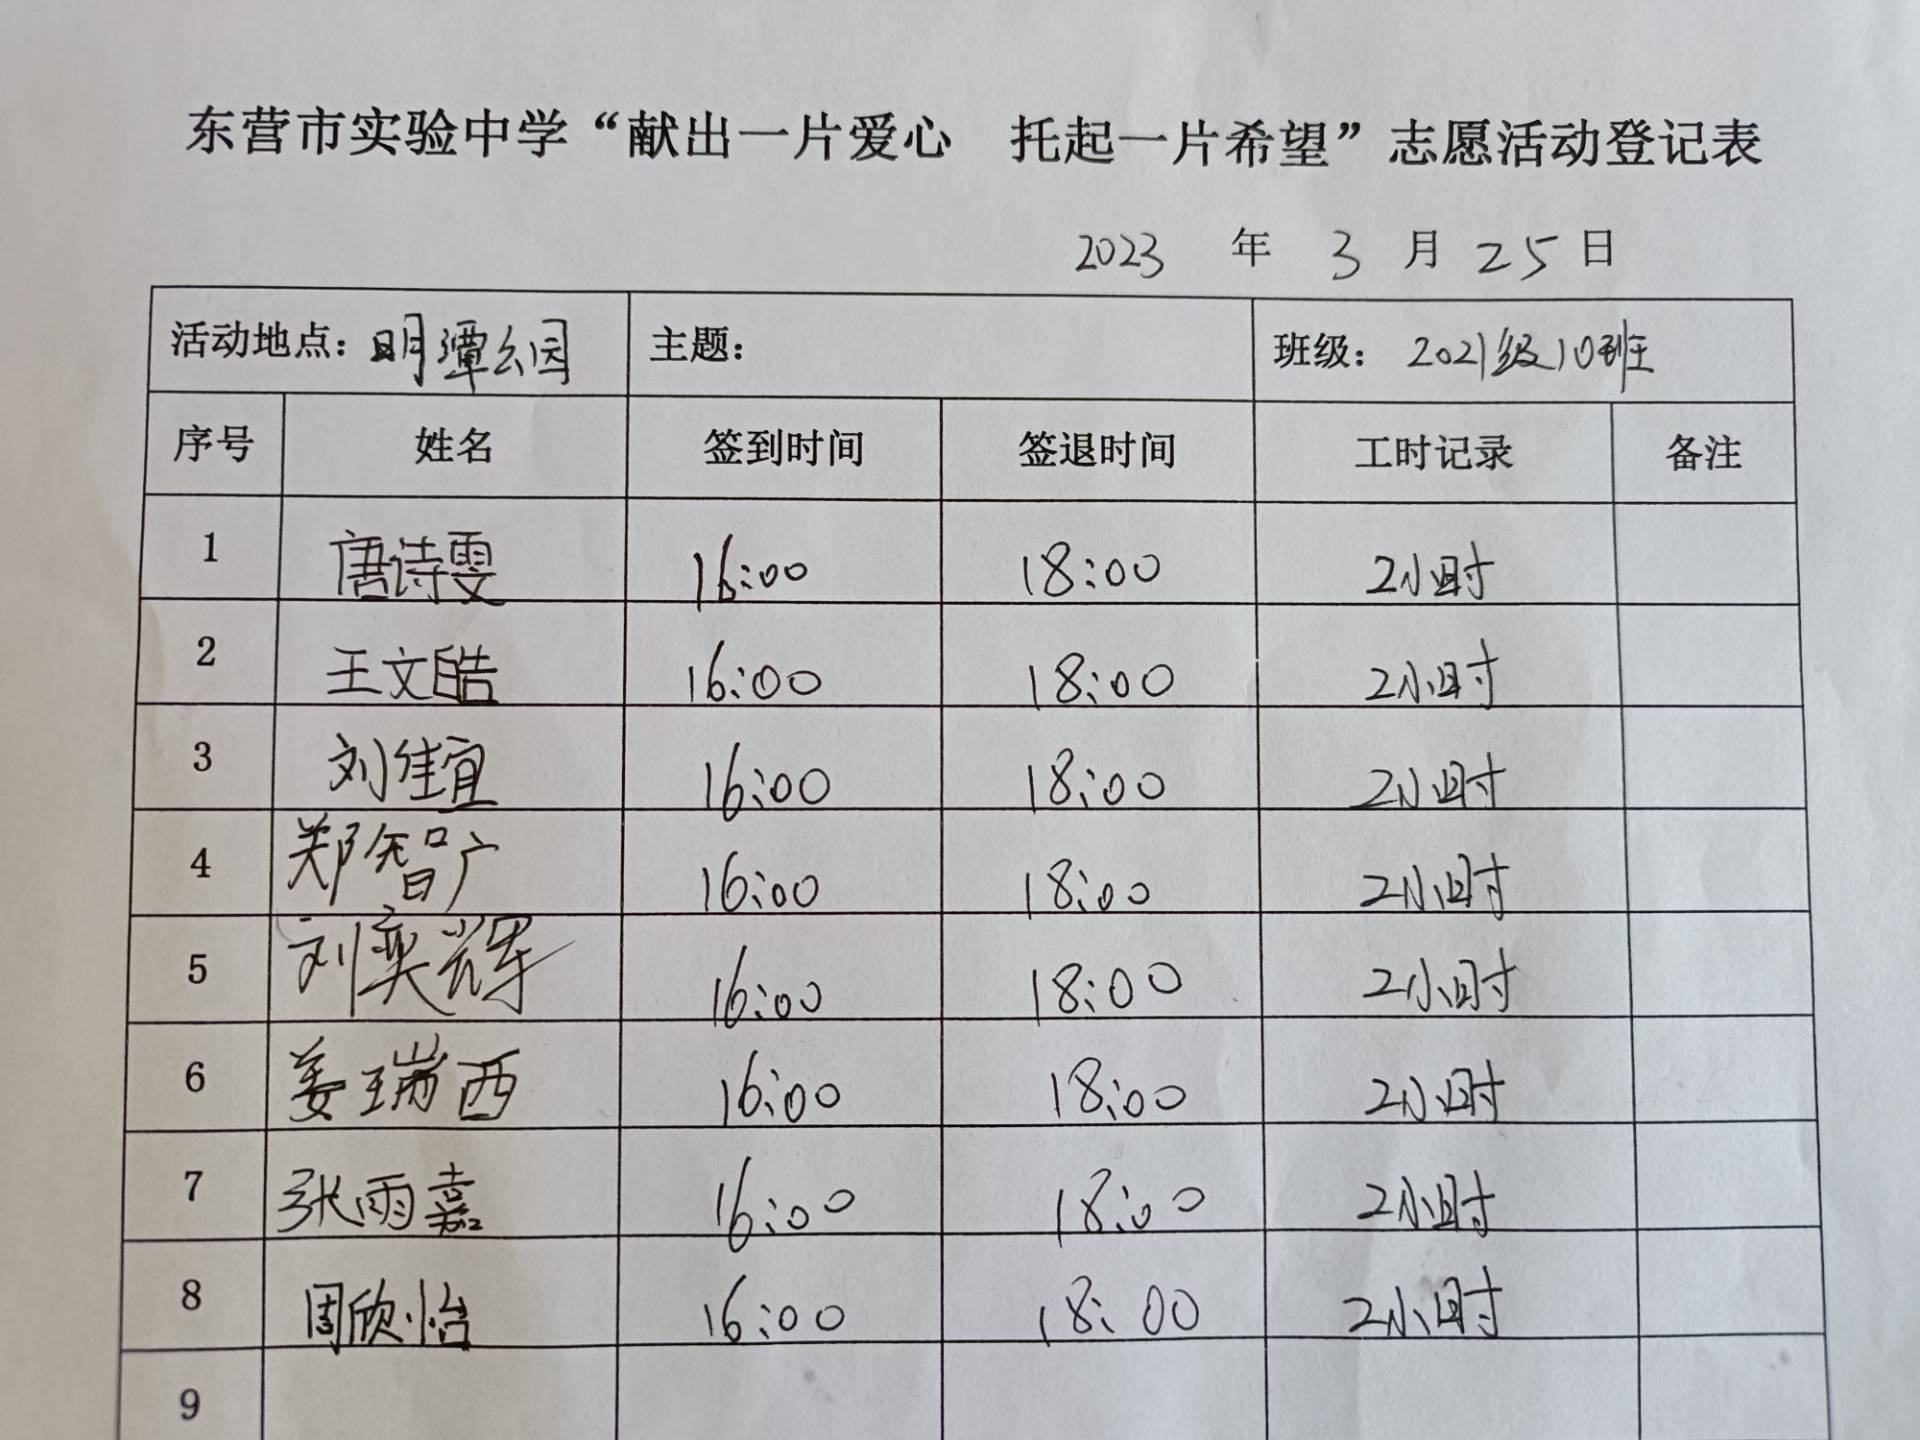 东营市实验中学“献出一片爱心 托起一片希望”志愿活动登记表
2023 年 3 月 25 日
活动地点：明潭公园 主题： 班级：2021级10班
序号 姓名 签到时间 签退时间 工时记录 备注
1 唐诗雯 16:00 18:00 2小时
2 王文皓 16:00 18:00 2小时
3 刘佳宜 16:00 18:00 2小时
4 郑智广 16:00 18:00 2小时
5 刘奕辉 16:00 18:00 2小时
6 姜瑞西 16:00 18:00 2小时
7 张雨嘉 16:00 18:00 2小时
8 周欣怡 16:00 18:00 2小时
9